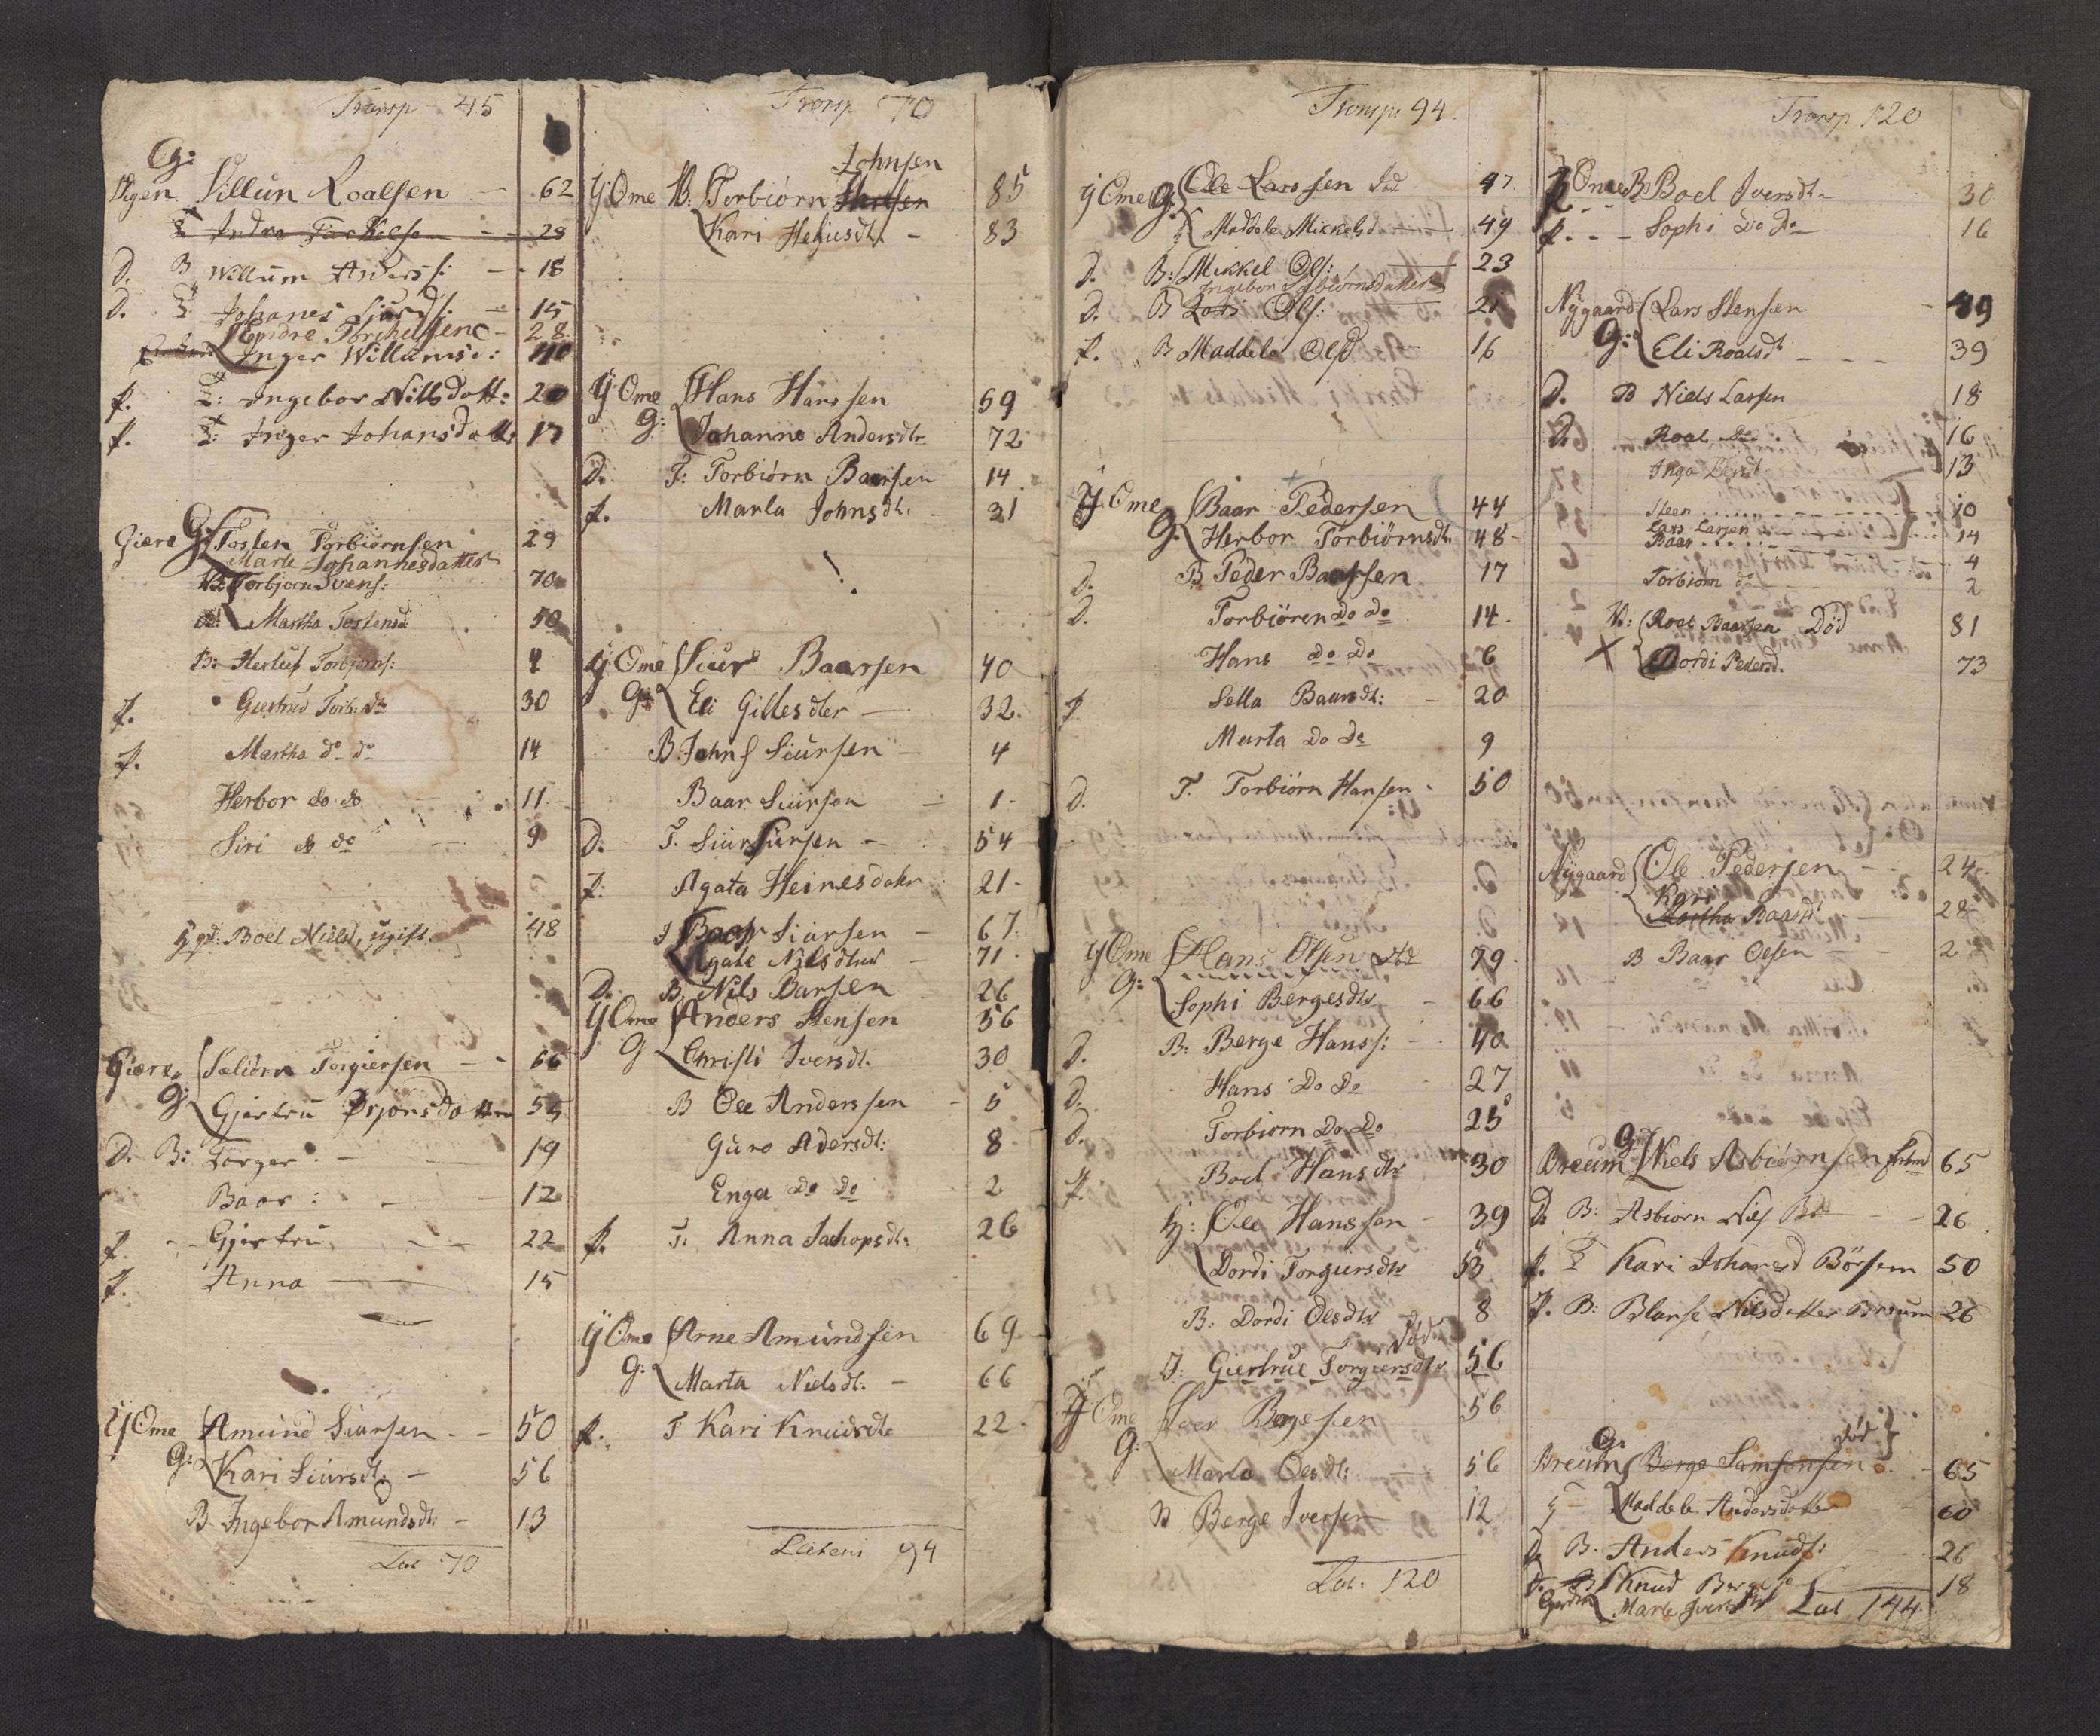 Transp 45
G:
Villun Roalsen 62
D. B Willum Anders: 18
D. Johanes Siurds: 15
Endre Torchelsen 28
Inger Willumsd:
f. Ingebor Nillsdott: 20
f. Inger Johansdatt: 17
Giære G: Tosten Torbiørnsen 29
Marte Johannesdatter
Torbjørn Svens: 70
Martha Tostensd 50
B: Herluf Torbjørns: 4
f. Giertrud Torb. dtr 30
f. Martha do do 14
Herbor do do 11
Siri do do 9
Boel Nielsd, ugift. 48
Giære Sæliörn Torgiersen 66
G: Gjertru Ørjonsdatter 55
D. B: Torger 19
Baar: 12
f. Gjertru 22
f. Anna 15
Y Ome Amund Siursen 50
G: Kari Siursdt: 56
B Ingebor Amundsdt: 13
Lat 70
Transp 70
Johnsen
Y Ome Torbiørn 85
Kari Heljesdt. 83
Y Ome Hans Hanssen 59
G: Johanne Andersdtr 72
D. T: Torbiörn Baarsen 14
f. Marla Johnsdt. 31
Y Ome Siur Baarsen 40
G: Eli Gillesdter 32
B John Siursen 4
Baar Siursen 1
D. T. Siur Siursen 54
f. Agata Heinesdatr 21
Baar Siursen 67
Agate Nilsdter 71
D. B. Nils Barsen 26
Y Ome Anders Stensen 56
G Christi Iversdt. 30
B Ole Anderssen 5
Guro Adersdt: 8
Enga do do 2
f. T: Anna Jachopsdt: 26
Y Ome Arne Amundsen 69
G: Marta Nielsdt. 66
f. T Kari Knudsdt: 22
Lateri 94
Transp: 94
Y Ome G: Ole Larssen død 47
Maddele Mikkelsd 49
D. B: Mikkel Ols: 23
Ingebor Torbiørnsdatter
D. B Lars Ols: 21
f. B Maddele Olsd 16
Y Ome Baar Pedersen 44
G. Herbor Torbiørnsdt. 48
D. B Peder Baarsen 17
D. Torbiören do do 14
Hans do do 6
f Sella Baarsdt: 20
Marta do do 9
D. T. Torbiörn Hansen 50
Y Ome Hans Olsen død 79
G: Sophi Bergesdtr 66
D. B: Berge Hanss: 40
D. Hans do do 27
D. Torbiorn do do 25
f. Boel Hansdtr 30
Ole Hanssen 39
Dordi Torgiersdtr 53
B. Dordi Olesdtr 8
død
Giertrue Torgiersdtr 56
Y Ome Iver Bergesen 56
G: Marta Olesdt: 56
B Berge Iversen 12
Lat: 120
Transp 120
Y Ome B Boel Iversdt 30
f. Sophi do do 16
Nygaard Lars Stensen 49
G: Eli Roalsdt 39
D. B Niels Larsen 18
D. Roal do 16
Inga Larsdt 13
Steen 10
Lars Larsen 14
Baar 4
Torbiorn do 2
Roel Baarsen Død 81
Dordi Pedersd. 73
Nygaard Ole Pedersen 24
Kari
Martha Baarsdt 28
B Baar Olesen 2
G:
Dreum Niels Asbiørnsen 65
D. B: Asbiorn Nils 26
f. T Kari Johanesd Börsem 50
f. B: Blanse Nilsdatter Dreum 26
død
G:
Dreum Berge Samsonsen 65
Maddele Andersdatter 60
D. B. Anders Knuds: 26
Knud Berges 18
Marte Iversdtr Lat 144